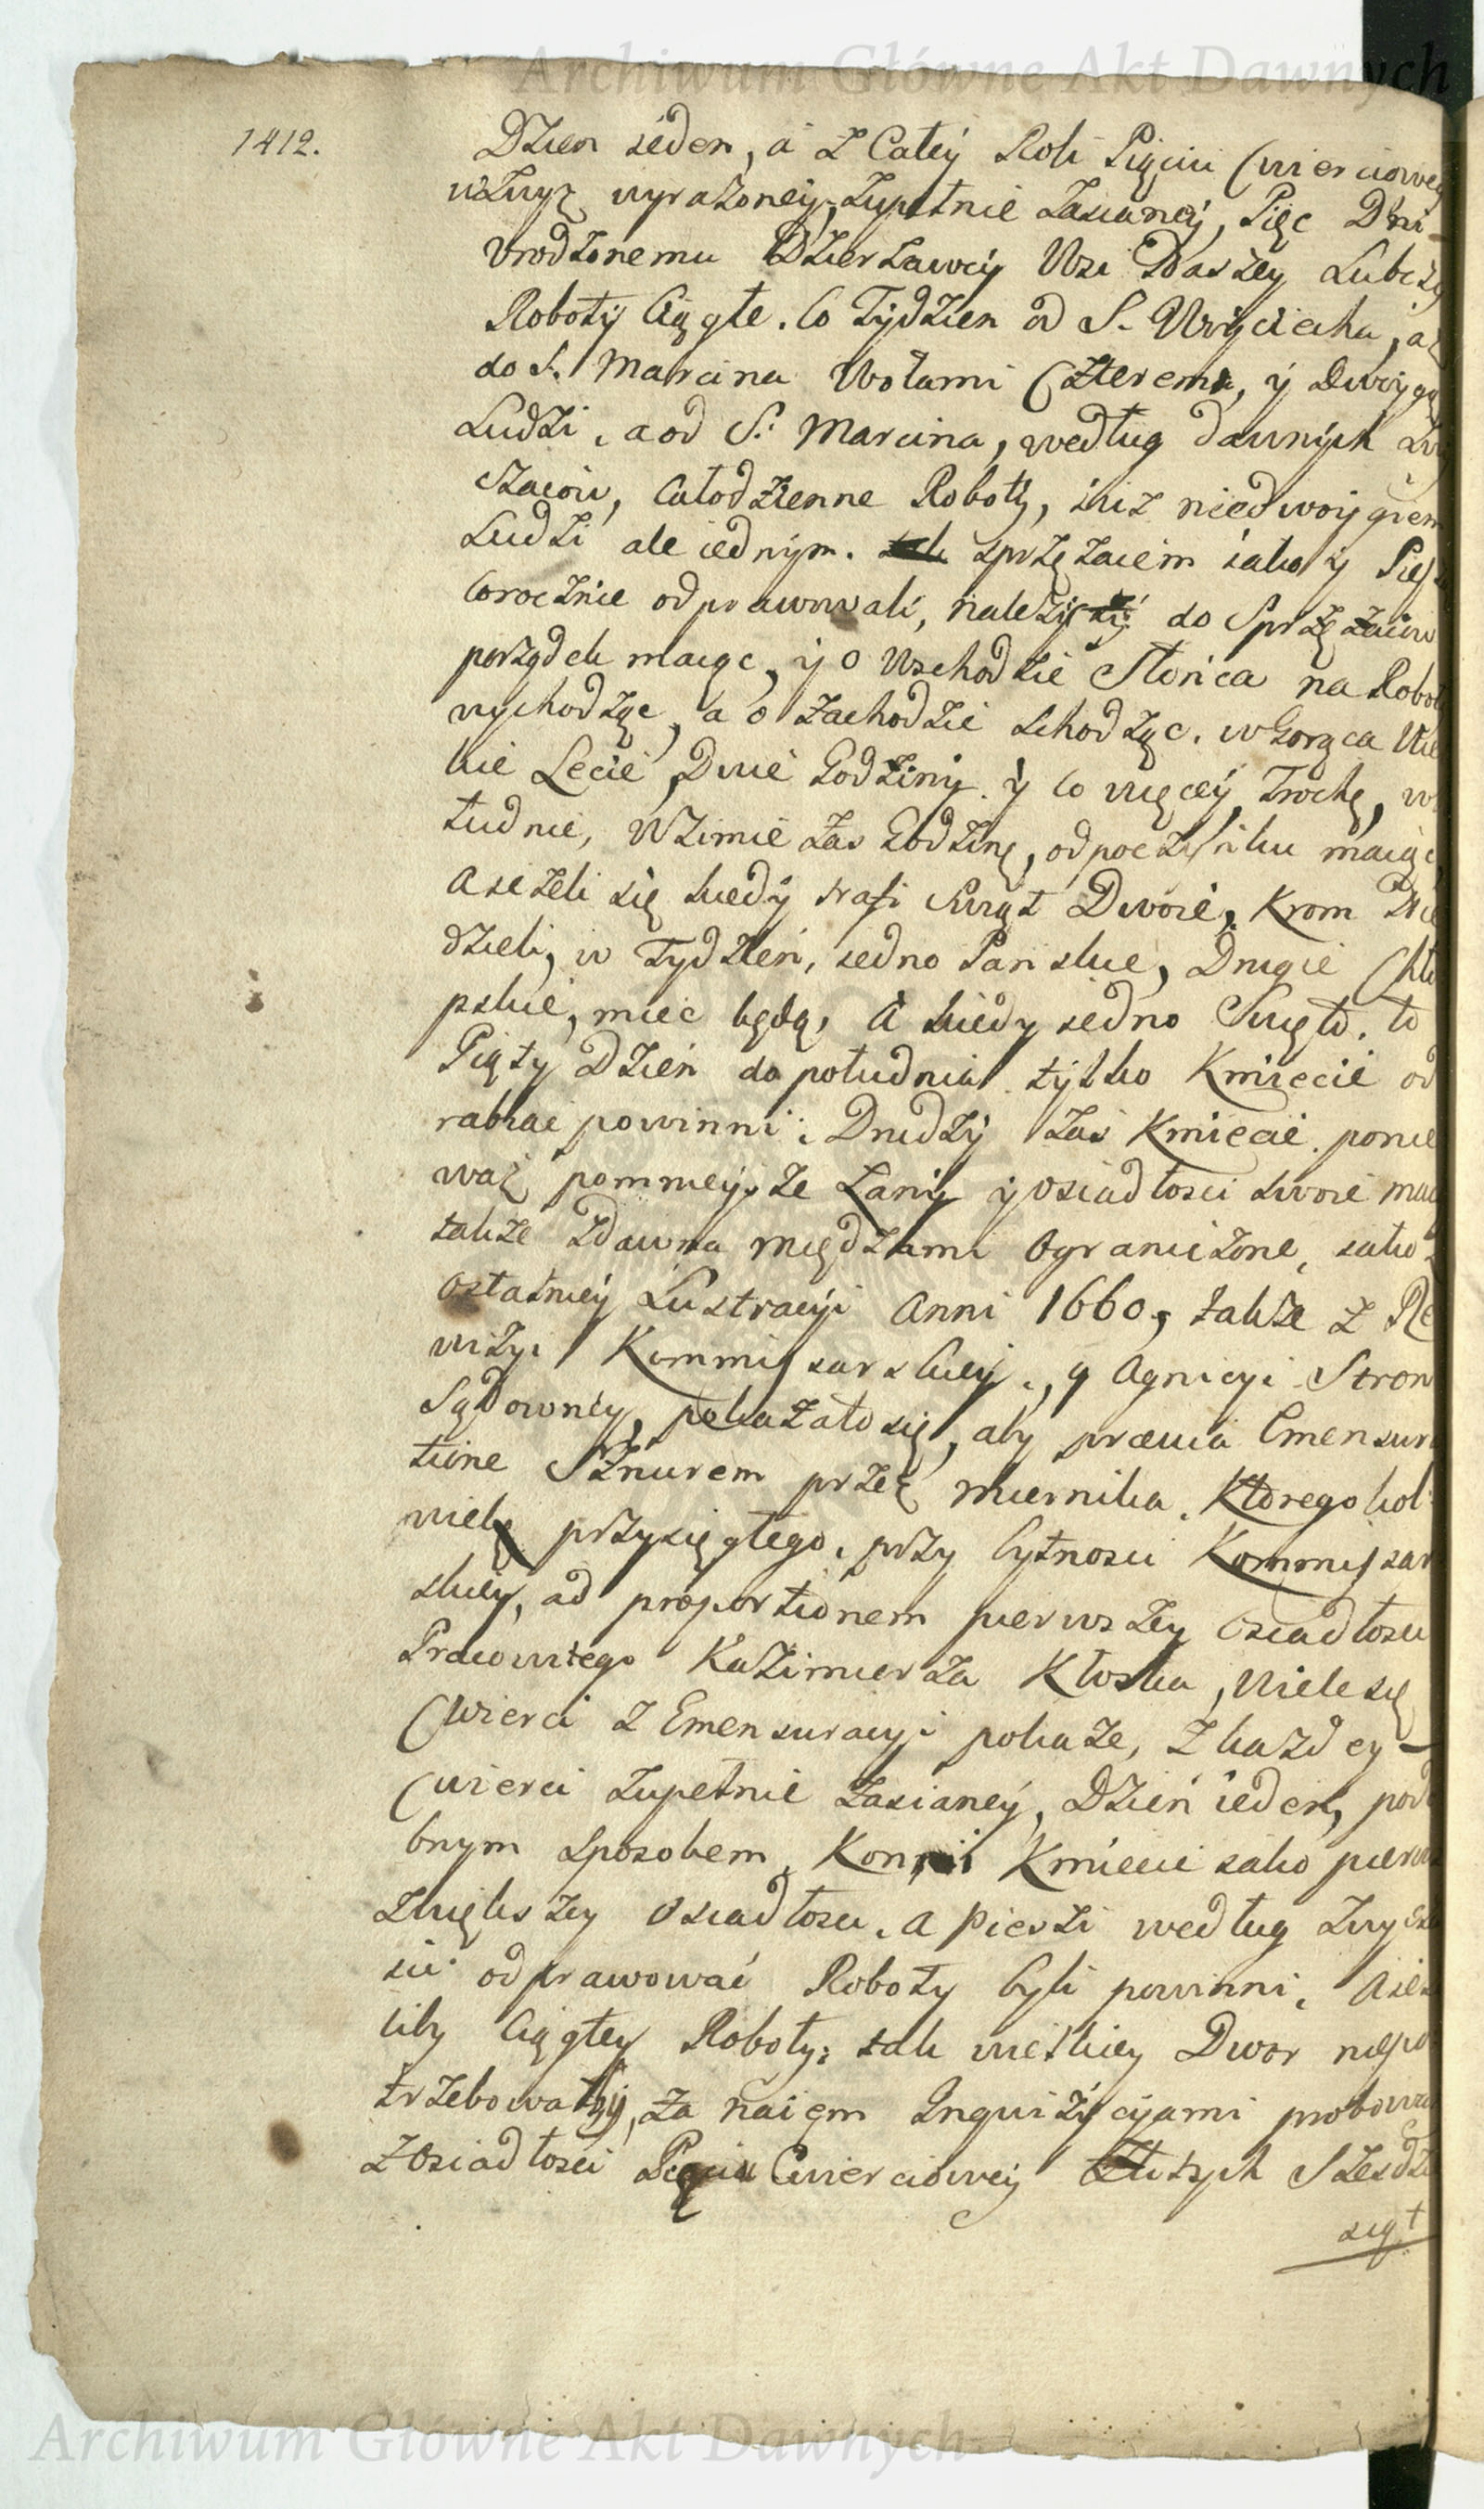 Archiwum Główne Akt Dawnych
1412.
Dzien ieden, a z Całey Roli Pięciu Cwierciowey
wzwyz wyrażoney, zupełnie zasianey, Pięc Dni
Vrodzonemu Dzierzawcy Wsi Naszey Lubczy
Roboty Ciągłe. Co Tydzien od S. Woyciecha, aż
do S. Marcina Wołami Czterema, y Dwoygą
Ludzi, a od S. Marcina, według dawnych zwy
czaiow, Całodzienne Roboty, iuż niedwoygiem
Ludzi ale iednym. sprzęzaiem iako y Piesze
Corocznie odprawowali, należyty do Sprzęzaiow
porządek maiąc, y o Wschodzie Słońca na Robotę
wychodząc, a o zachodzie schodząc. w Gorąca Wiel
kie Lecie, Dwie Godziny y Co więcey Trochę, w
łudnie, W Zimie zas Godzinę, odpoczynku maiąc
A ieżeli się kiedy trafi Swięt Dwoie, Krom Nie
dzieli, w Tydzień, iedno Pańskie, Drugie Chło
pskie, miec będą, A kiedy iedno Swięto. to
Piąty Dzień do południa tylko Kmiecie od
rabiac powinni. Drudzy zaś Kmiecie ponie
waż pomnieysze Łany y osiadłosci swoie maią
także zdawna międzami Ograniczone, iako z
Ostatniey Lustracyi Anni 1660, także z Re
wizyi Kommissarskiey, y Agnicyi Stron
Sądowney, pokazało się, aby prævia Emensura
tione Sznurem przez miernika. Ktoregokol
wiek przysięgłego. przy bytnosci Kommissar
skiey, ad proportionem pierwszey Osiadłosci
Pracowitego Kazimierza Kłoska, Wiele się
Cwierci z Emensuracyi pokaże, z każdey
Cwierci zupełnie zasianey, Dzień ieden, podo
bnym sposobem, Konni Kmiecie iako pierwsi
zwiększey Osiadłosci. a Piesi według zwycza
iu odprawować Roboty byli powinni, A ież
liby Ciągłey Roboty: tak wielkiey Dwor niepo
trzebował, za naięm Inquizycyami probowa
z Osiadłości Pięciu Cwierciowey Złotych Szesdzie
siąt
Archiwum Główne Akt Dawnych